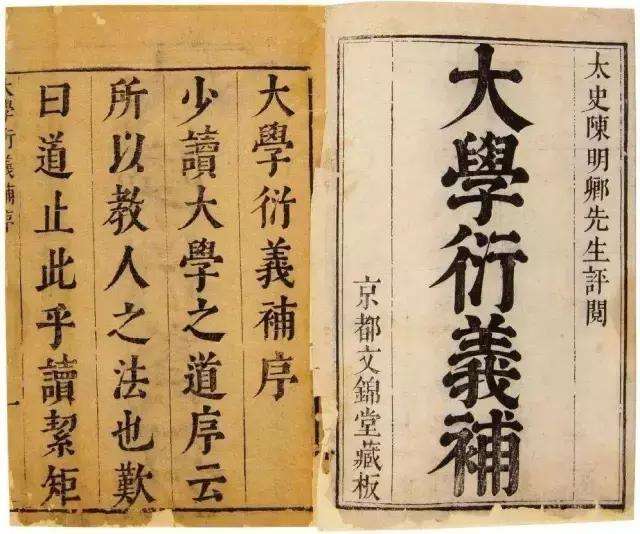 太史陳明卿先生評閲
大學衍義補
京都文錦堂藏板
大學衍義補序
少讀大學之道序云
所以教人之法也歎
曰道止此乎讀絜矩
大學衍義補序
一